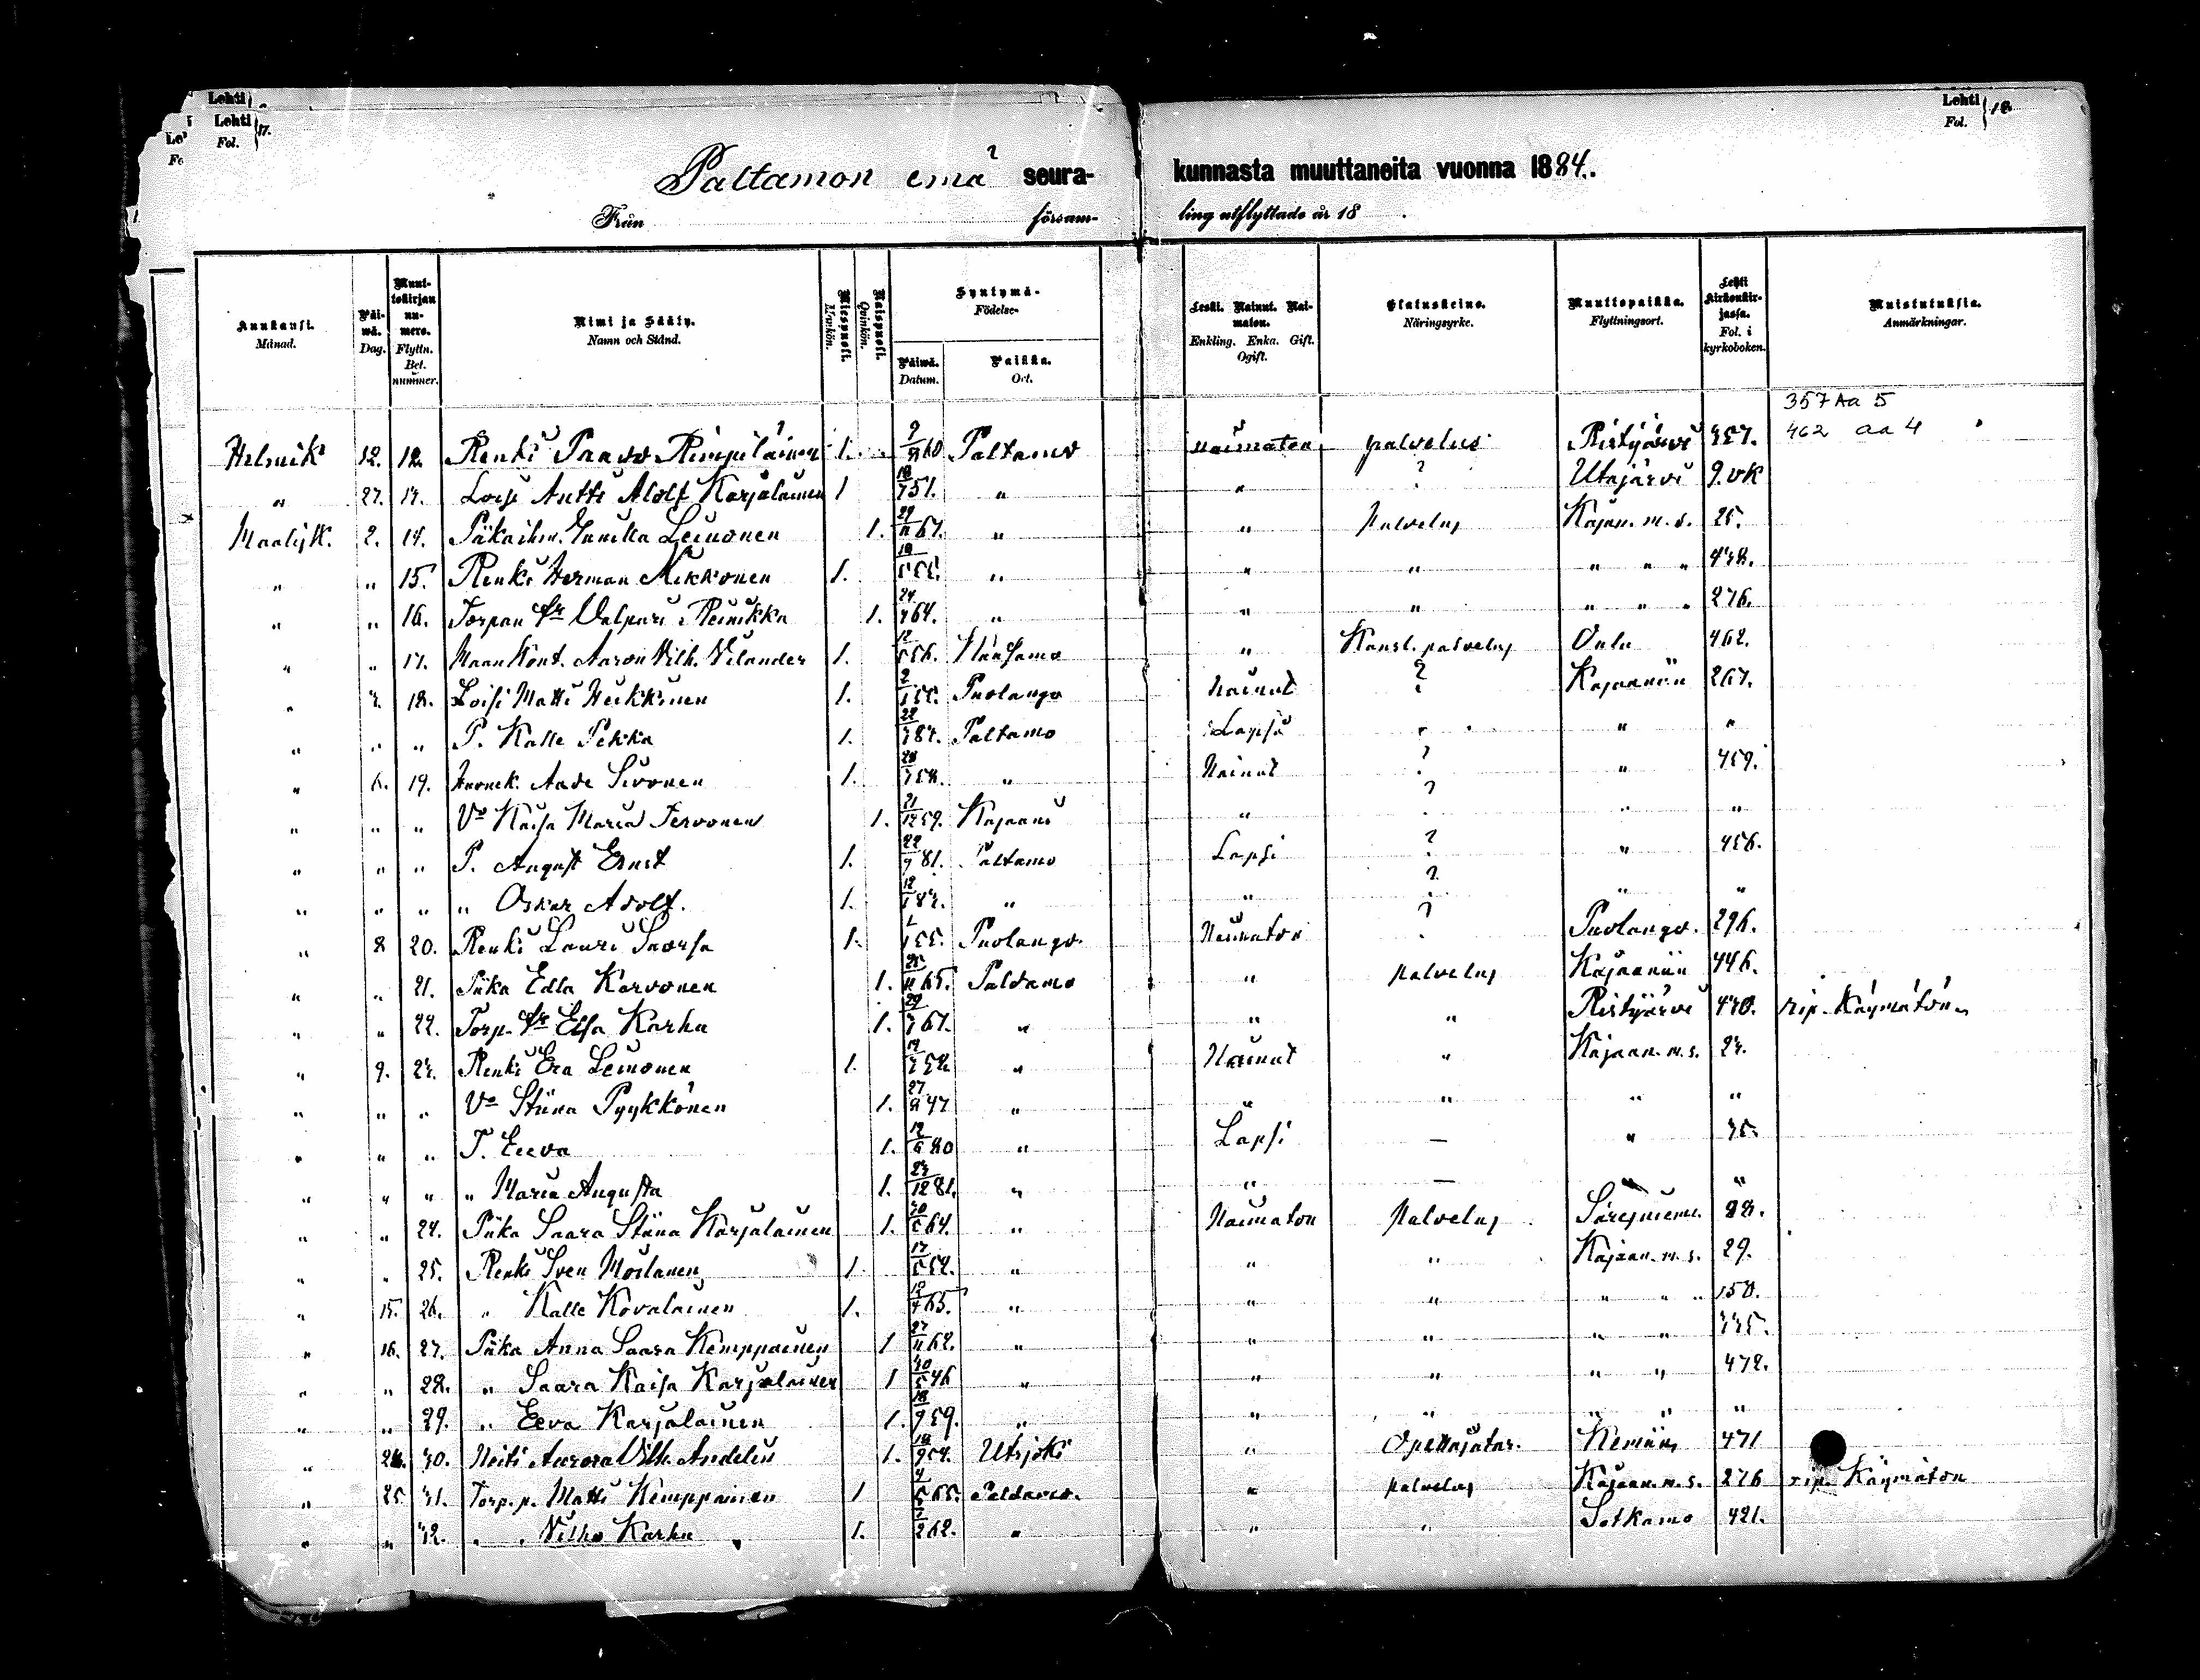 Lehti
Lehti Fol. 17.
Lehti Fol. 18
Paltamon emä seura- kunnasta muuttaneita vuonna 1884.
Från församling utflyttade år 18 .
Kuukausi. Månad.
Päiwä. Dag.
Muuttokirjan numero. Flyttn. Bet. nummer.
Nimi ja Sääty. Namn och Stånd.
Miespuoli. Mankön.
Naispuoli. Qvinkön.
Syntymä- Födelse-
Päiwä. Datum.
Paikka. Ort.
Leski. Nainut. Naimaton. Enkling. Enka. Gift. Ogift.
Elatuskeino. Näringsyrke.
Muuttopaikka. Flyttningsort.
Lehti kirkonkirjassa. Fol. i kyrkoboken.
Muistutuksia. Anmärkningar.
357 Aa 5
Helmik 12. 12. Renki Paavo Rimpiläinen 1. 60 Paltamo naimaton palvelus Ristijärvi 357. 462 aa 4
" 27. 13. Loisi Antti Adolf Karjalainen 1 51. " " ? Utajärvi 9.vk
Maalisk. 2. 14. Piika Leinonen 1. 29/11 67. " " palvelus Kajan. m. s. 25.
" " 15. Renki Herman Mikkonen 1. " " " " " " 438.
" " 16. Torpan tr Valpuri Reinikka 1. 24/4 64. " " " " " " 276.
" " 17. Aaron Vilh. Vilander 1. 12/5 56. " palvelus Oulu 462.
" 3. 18. Loisi Matti Heikkinen 1. 2/1 55. Puolango Nainut ? Kajaaniin 267.
" " " P. Kalle Pekka 1. 22 83. Paltamo Lapsi " " "
" 6. 19. Aade Sivonen 1. 58. " Nainut ? " 459.
" " " Vo Kaisa Maria Tervonen 1. 21/12 59. Kajaani " ? " "
" " " P. August Ernst 1. 22/9 81. Paltamo Lapsi ? " 456.
" " " " Oskar Adolf. 1. 83. " " ? " "
" 8 20. Renki Lauri Saarsa 1. 55. Puolango. Naimaton ? Puolango. 296.
" " 21. Piika Edla Karvonen 1. 25/11 65. Paldamo " palvelus Kajaaniin 446.
" " 22. Torp. tr Elsa Karhu 1. 29 67. " " " Ristijärvi 430. rip. Käymätön
" 9. 23. Renki Era Leinonen 1. 52 " Nainut " Kajaan. m. s. 23.
" " " Vo Stiina Pyykkönen 1. 27 47 " " " " "
" " " T. Eeva 1. 12/6 80 " Lapsi — " 35.
" " " " Maria Augusta 1. 23/12 81. " " — " "
" " 24. Piika Saara Stiina Karjalainen 1. 30/5 64. " Naimaton palvelus Säresniemi. 88.
" " 25. Renki Sven Moilanen 1. 17/5 54. " " " Kajaan. m. s. 29.
" 15. 26. " Kalle Kovalainen 1. 12/4 65. " " " " " " 150.
" 16. 27. Piika Anna Saara Kemppainen 1 27/11 62. " " " " " 335.
" " 28. " Saara Kaisa Karjalainen 1 30/5 46 " " " " " 472.
" " 29. " Eeva Karjalainen 1. 18/9 59. " " " " " "
" 24. 30. Neiti Aurora Vilh. Andelin 1. 18/9 54. Utsjoki " Opettajatar. Kemiin 471
" 25 31. Torp. p. Matti Kemppainen 1 4/5 65. Paldamo. " palvelus Kajaan. m. s. 276 rip. Käymätön
" " 32. " " Vilho Karhu 1. 7/2 62. " " " Sotkamo 421.